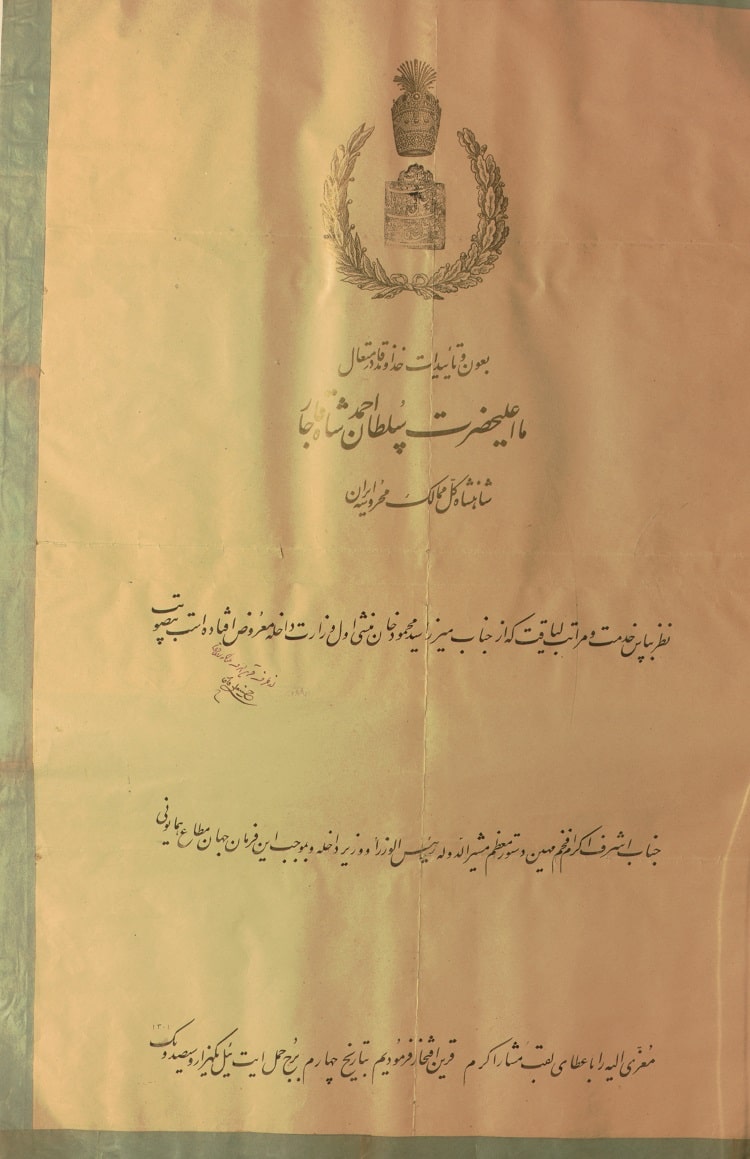 بعون و تأییدات خداوند قادر متعال
ما اعلیحضرت سلطان احمد شاه قاجار
شاهنشاه کل ممالک محروسه ایران
نظر بپاس خدمت و مراتب لیاقت که از جناب میرزا سید محمود خان منشی اول وزارت داخله معروض افتاده است بتصویب
جناب اشرف اکرم افخم مهین دستور معظم مشیرالدوله رئیس الوزراء و وزیر داخله و بموجب این فرمان جهان مطاع همایونی
معزی الیه را با عطای لقب مشار اکرم قرین افتخار فرمودیم بتاریخ چهارم برج حمل ایت ئیل یکهزار و سیصد و یک
۱۳۰۱